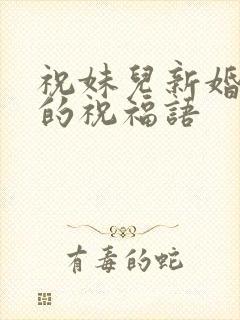 祝妹兒新婚
的祝福語
有毒的蛇